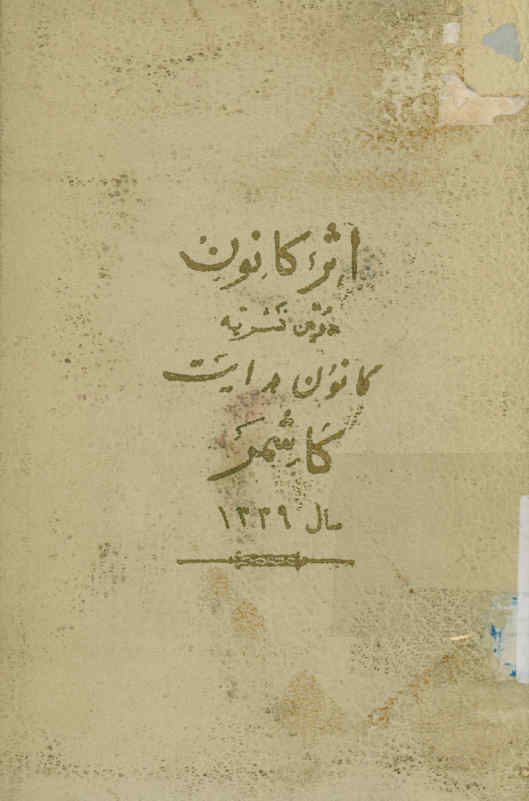 اثر کانون
دومین نشریه
کانون هدایت
کاشمر
سال ۱۳۳۹